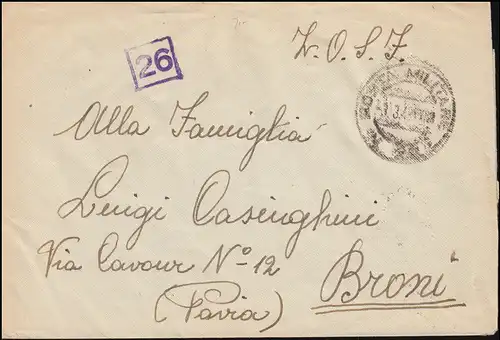 26
Z.O.S.F.
POSTA MILITARE
Alla Famiglia
Luigi Casinghini
Via Cavour N° 12
Broni
(Pavia)